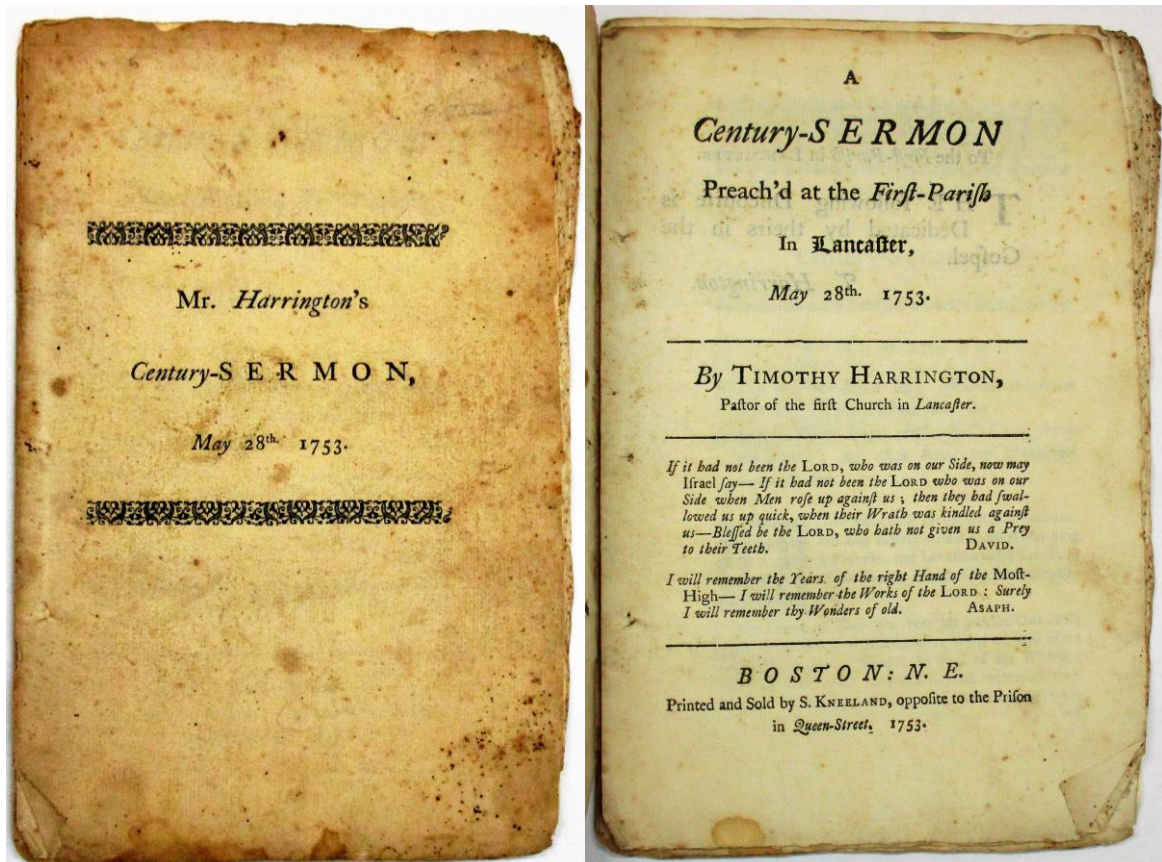 Mr. Harrington's
Century-SERMON,
May 28th. 1753.
A
Century-SERMON
Preach'd at the Firſt-Pariſh
In Lancaſter,
May 28th. 1753.
By TIMOTHY HARRINGTON,
Paſtor of the firſt Church in Lancaſter.
If it had not been the LORD, who was on our Side, now may
Iſrael ſay— If it had not been the LORD who was on our
Side when Men roſe up againſt us ; then they had ſwal-
lowed us up quick, when their Wrath was kindled againſt
us—Bleſſed be the LORD, who hath not given us a Prey
to their Teeth. DAVID.
I will remember the Years of the right Hand of the Moſt-
High— I will remember the Works of the LORD : Surely
I will remember thy Wonders of old. ASAPH.
BOSTON: N. E.
Printed and Sold by S. KNEELAND, oppoſite to the Priſon
in Queen-Street. 1753.